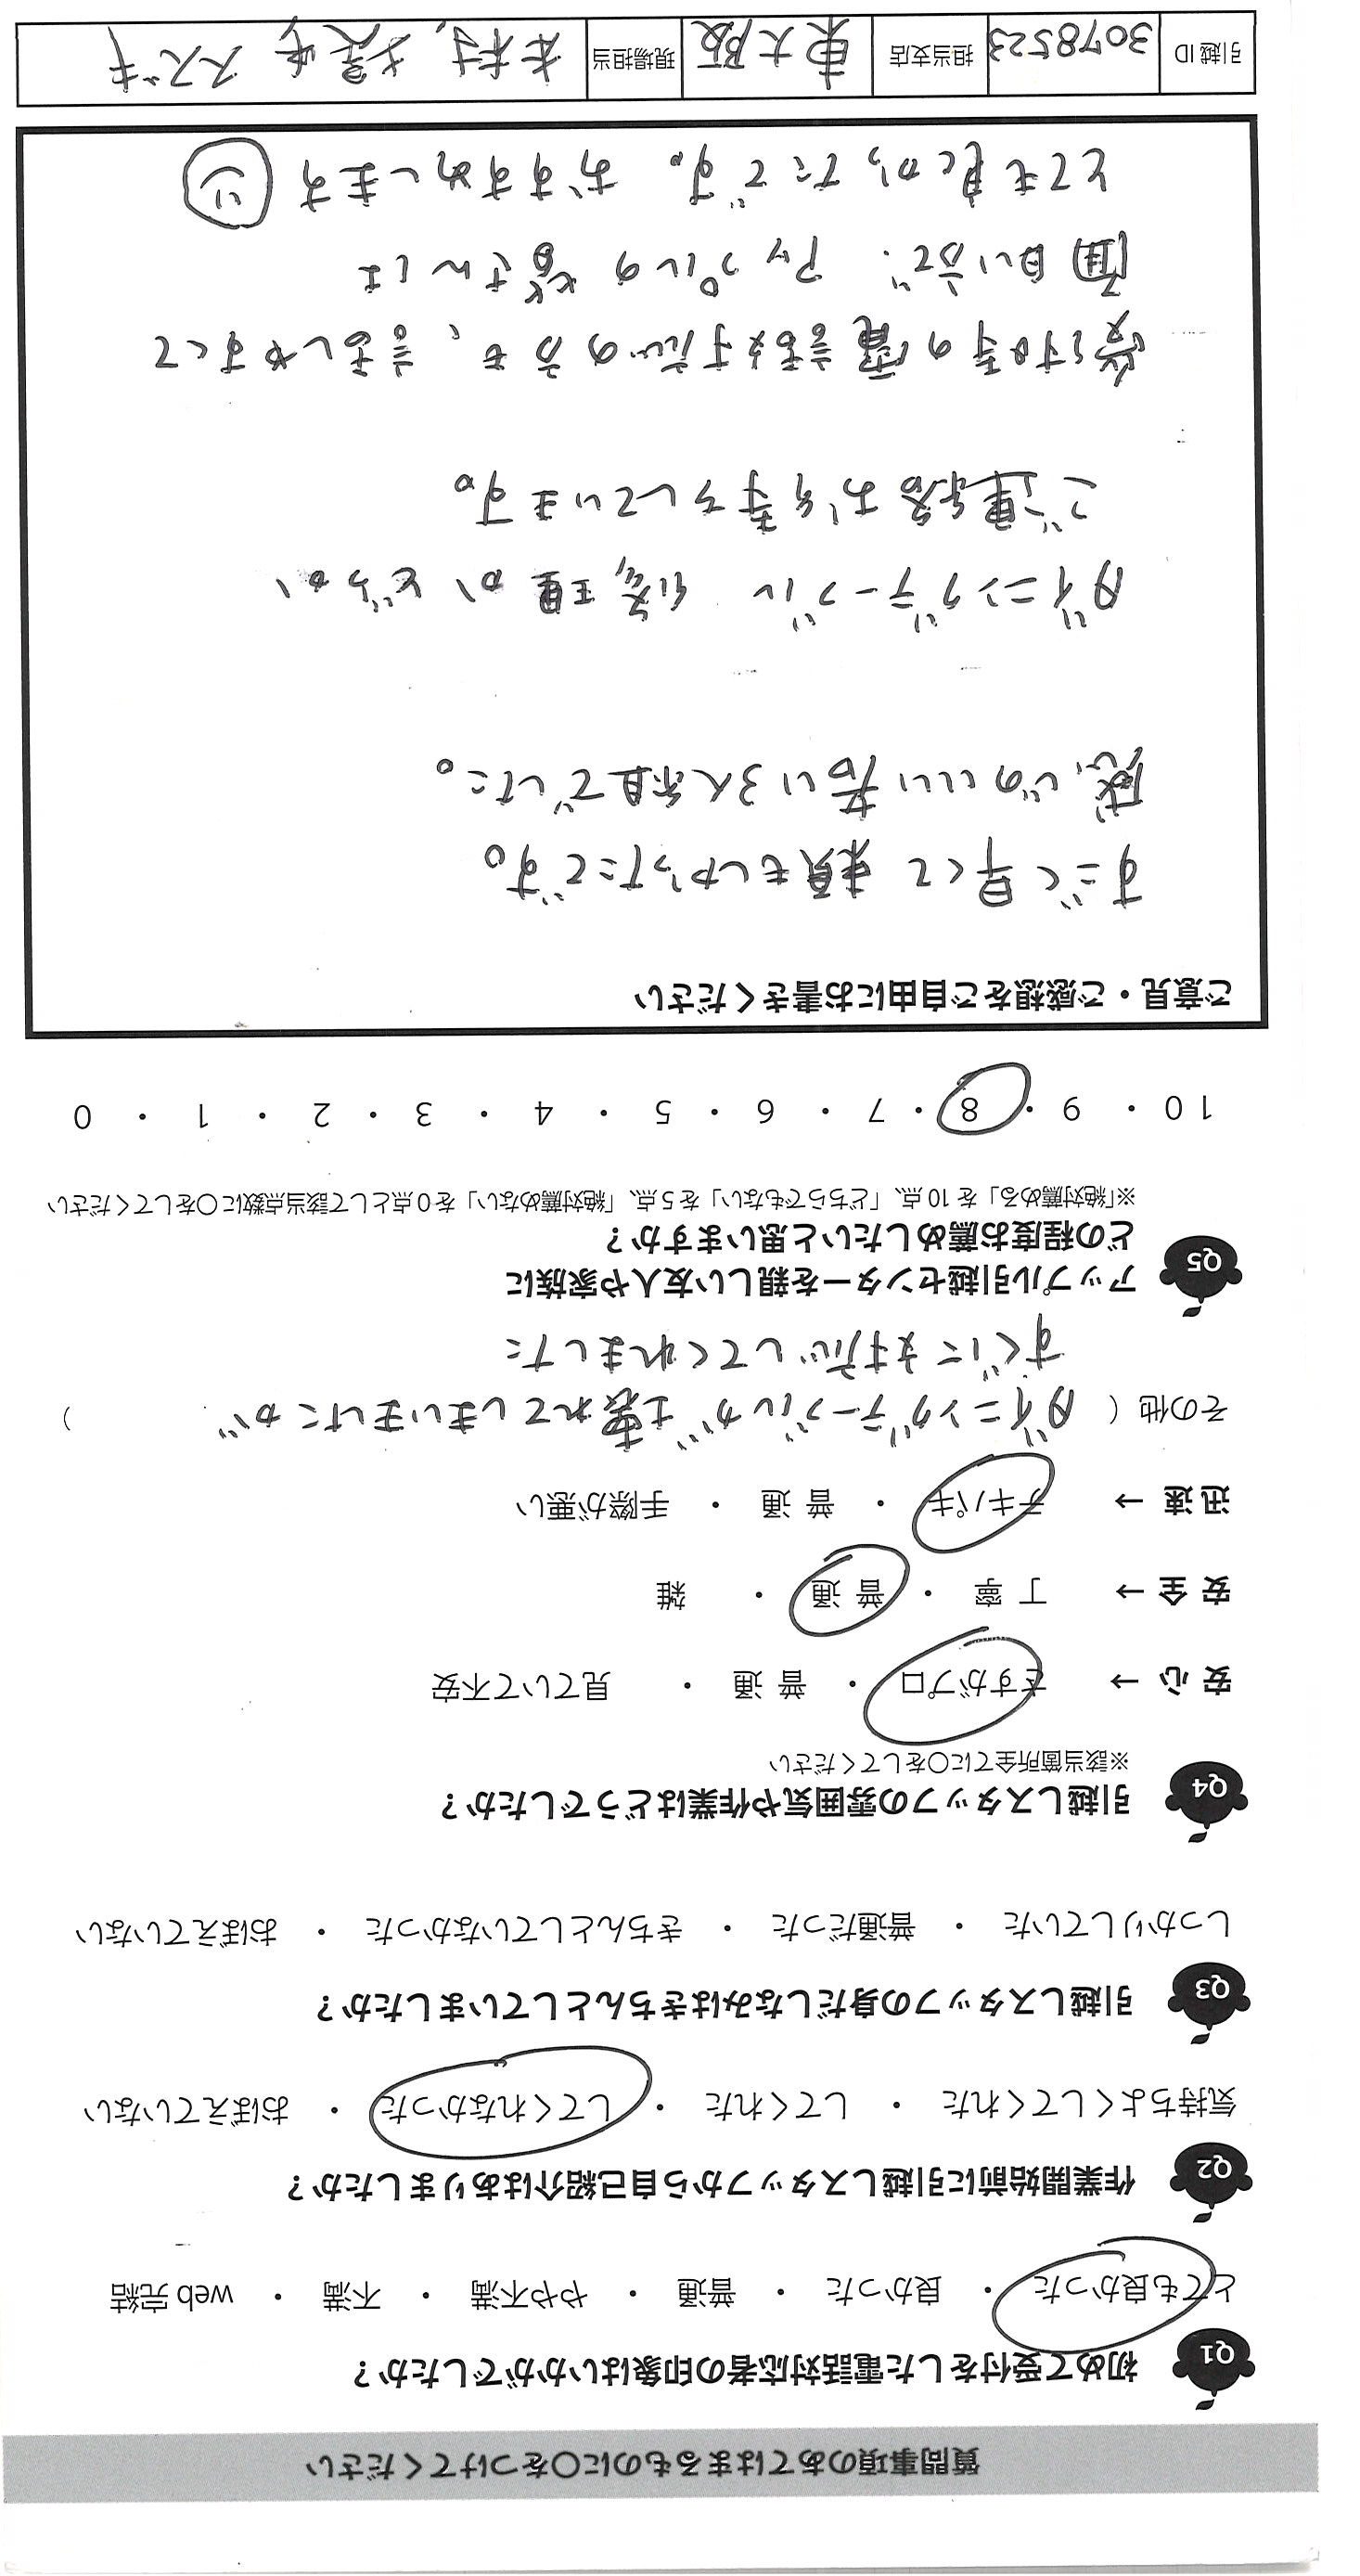 質問事項のあてはまるものに○をつけてください
Q1 初めて受付をした電話対応者の印象はいかがでしたか？
とても良かった ・ 良かった ・ 普通 ・ やや不満 ・ 不満 ・ web 完結
Q2 作業開始前に引越しスタッフから自己紹介はありましたか？
気持ちよくしてくれた ・ してくれた ・ してくれなかった ・ おぼえていない
Q3 引越しスタッフの身だしなみはきちんとしていましたか？
しっかりしていた ・ 普通だった ・ きちんとしていなかった ・ おぼえていない
Q4 引越しスタッフの雰囲気や作業はどうでしたか？
※該当箇所全てに○をしてください
安 心 → さすがプロ ・ 普 通 ・ 見ていて不安
安 全 → 丁 寧 ・ 普 通 ・ 雑
迅 速 → テキパキ ・ 普 通 ・ 手際が悪い
その他（ ダイニングテーブルが壊れてしまいましたが ）
すぐに対応してくれました
Q5 アップル引越センターを親しい友人や家族に
どの程度お薦めしたいと思いますか？
※「絶対薦める」を 10 点、「どちらでもない」を 5 点、「絶対薦めない」を 0 点として該当点数に○をしてください
10 ・ 9 ・ 8 ・ 7 ・ 6 ・ 5 ・ 4 ・ 3 ・ 2 ・ 1 ・ 0
ご意見・ご感想をご自由にお書きください
すごく早くて 頼もしかったです。
感じのいい若い3人組でした。
ダイニングテーブル 修理かどうか
ご連絡お待ちしています。
受付時の電話対応の方も、話しやすくて
面白い方で、アップルの皆さんは
とても良かったです。おすすめします
引越 ID 3078523 担当支店 東大阪 現場担当 木村, スズキ